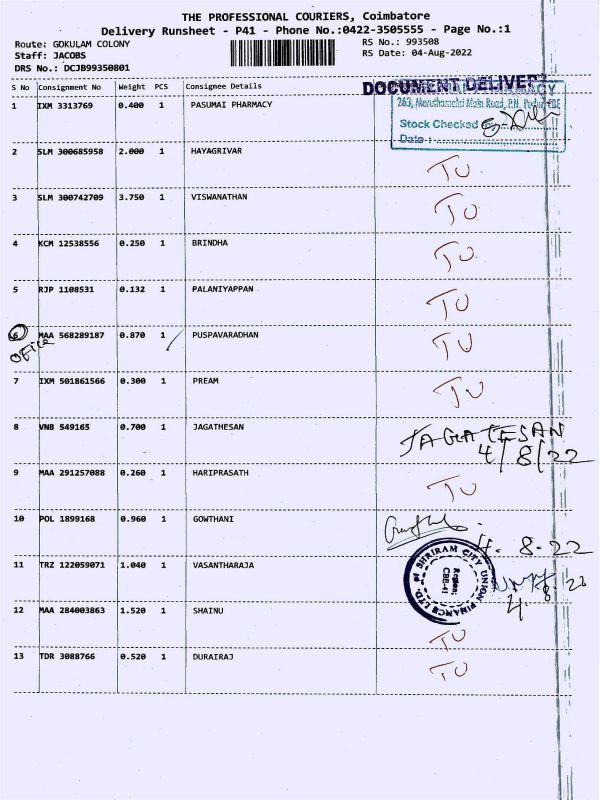 THE PROFESSIONAL COURIERS, Coimbatore
Delivery Runsheet - P41 - Phone No.:0422-3505555 - Page No.:1
Route: GOKULAM COLONY
RS No.: 993508
Staff: JACOBS
RS Date: 04-Aug-2022
DRS No.: DCJB99350801
S No Consignment No Weight PCS Consignee Details
DOCUMENT DELIVERY
1 IXM 3313769 0.400 1 PASUMAI PHARMACY
263, Maruthamalai Main Road, P.N.
Stock Checked
Date :
2 SLM 300685958 2.000 1 HAYAGRIVAR TU
3 SLM 300742709 3.750 1 VISWANATHAN TU
4 KCM 12538556 0.250 1 BRINDHA TU
5 RJP 1108531 0.132 1 PALANIYAPPAN TU
6 MAA 568289187 0.870 1 PUSPAVARADHAN TU
OFFICE
7 IXM 501861566 0.300 1 PREAM TU
8 VNB 549165 0.700 1 JAGATHESAN JAGATESAN
4/8/22
9 MAA 291257088 0.260 1 HARIPRASATH TU
10 POL 1899168 0.960 1 GOWTHANI
4.8.22
11 TRZ 122059071 1.040 1 VASANTHARAJA
SHRIRAM CITY UNION FINANCE LTD.
Region:
CBE-41
12 MAA 284003863 1.520 1 SHAINU TU
13 TDR 3088766 0.520 1 DURAIRAJ TU